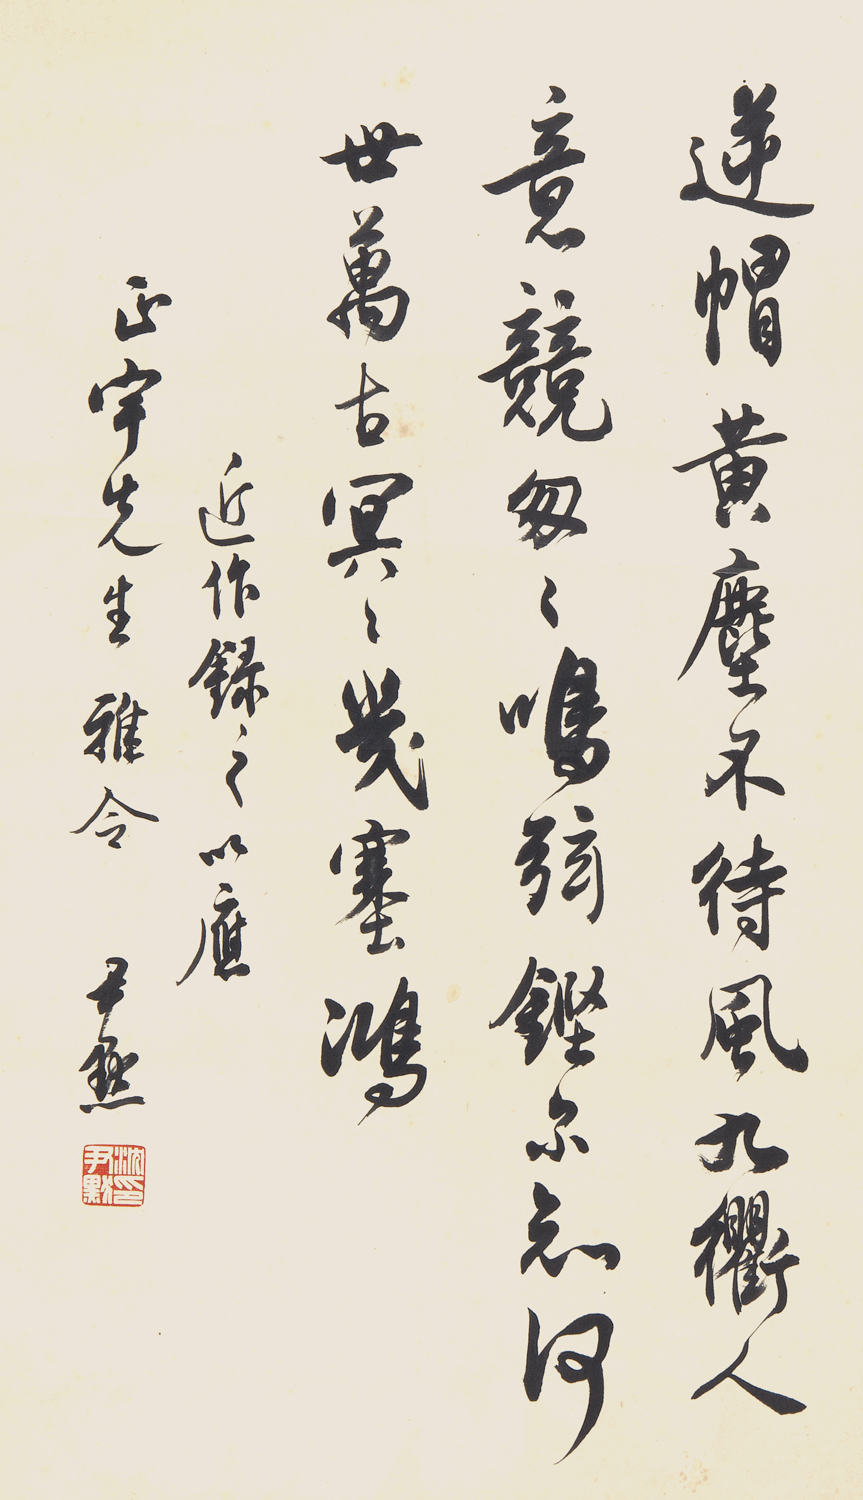 逆帽黄塵不待風九衢人
意競匆々鳴弦鏗尔忘何
世萬古冥々幾塞鴻
近作録之以應
正宇先生雅令 尹默
沈印
尹默